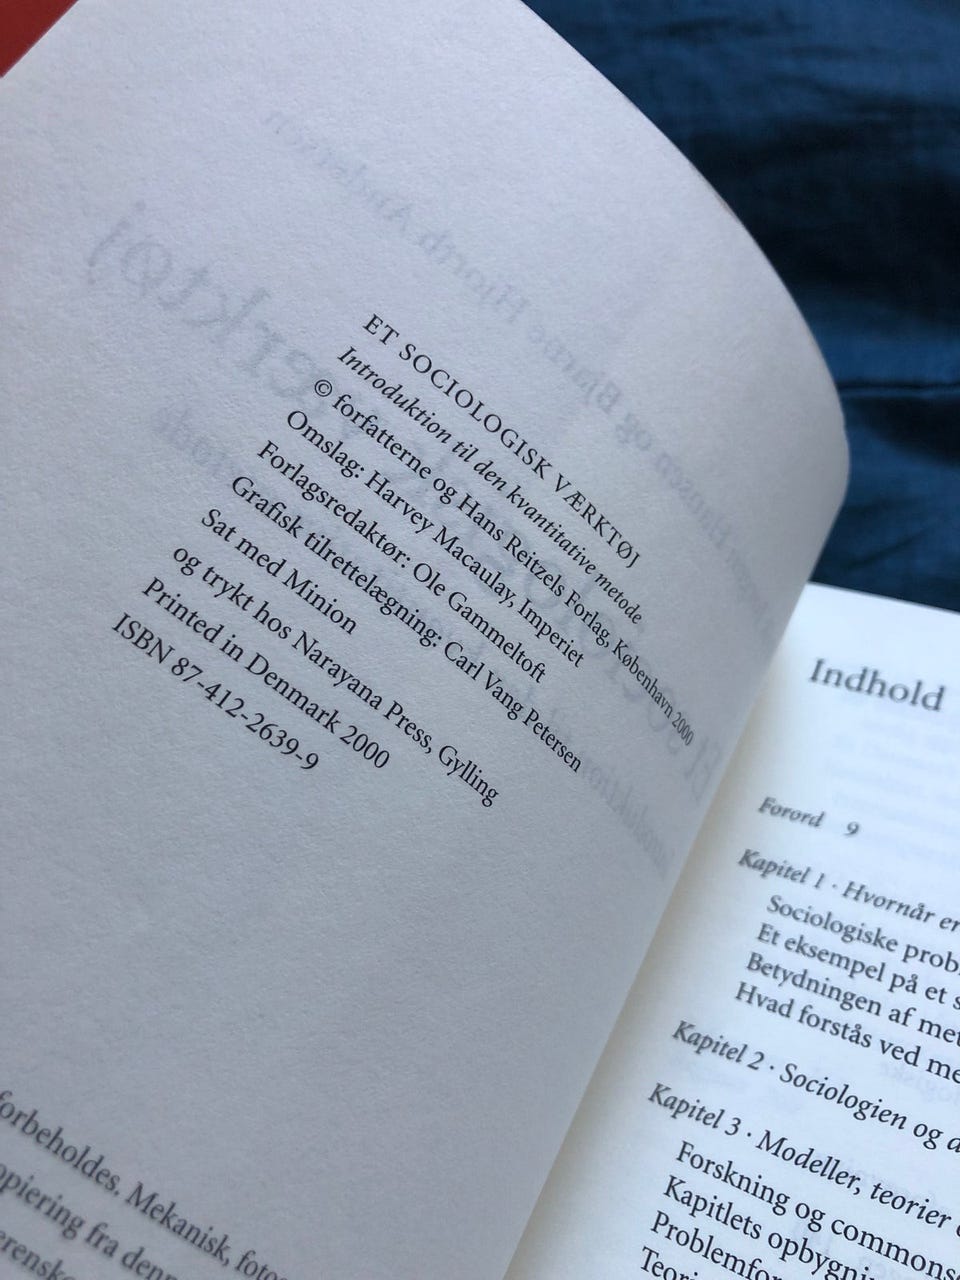 ET SOCIOLOGISK VÆRKTØJ
Introduktion til den kvantitative metode
© forfatterne og Hans Reitzels Forlag, København 2000
Omslag: Harvey Macaulay, Imperiet
Forlagsredaktør: Ole Gammeltoft
Grafisk tilrettelægning: Carl Vang Petersen
Sat med Minion
og trykt hos Narayana Press, Gylling
Printed in Denmark 2000
ISBN 87-412-2639-9
forbeholdes. Mekanisk, fotog
opiering fra denn
Indhold
Forord 9
Kapitel 1 · Hvornår er
Sociologiske prob
Et eksempel på et s
Betydningen af met
Hvad forstås ved me
Kapitel 2 · Sociologien og d
Kapitel 3 · Modeller, teorier
Forskning og commons
Kapitlets opbygni
Problemfor
Teori